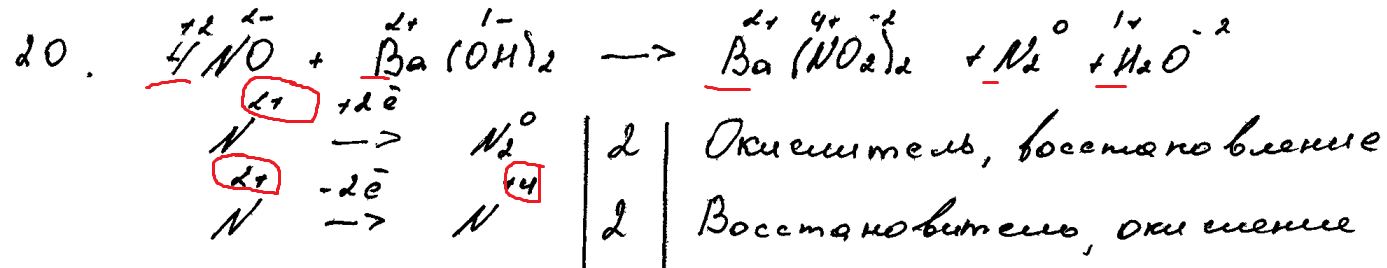 20. 4N⁺²O²⁻ + Ba²⁺(OH)¹⁻₂ → Ba²⁺(N⁴⁺O₂⁻²)₂ + N₂⁰ + H₂¹⁺O⁻²
N²⁺ +2ē → N₂⁰ | 2 | Окислитель, восстановление
N²⁺ -2ē → N⁺⁴ | 2 | Восстановитель, окисление